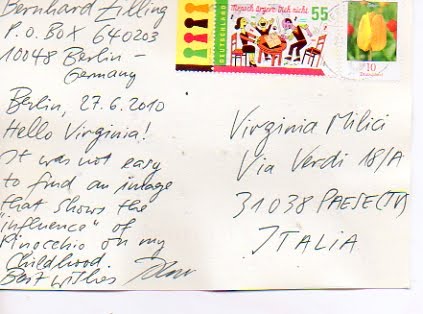 Bernhard Zilling
P.O. BOX 640203
10048 Berlin -
Germany
Berlin, 27.6.2010
Hello Virginia!
It was not easy
to find an image
that shows the
"influence" of
Pinocchio on my
Childhood.
Best wishes
DEUTSCHLAND
Mensch ärgere Dich nicht
55
10
Virginia Milici
Via Verdi 18/A
31038 PAESE (TV)
ITALIA